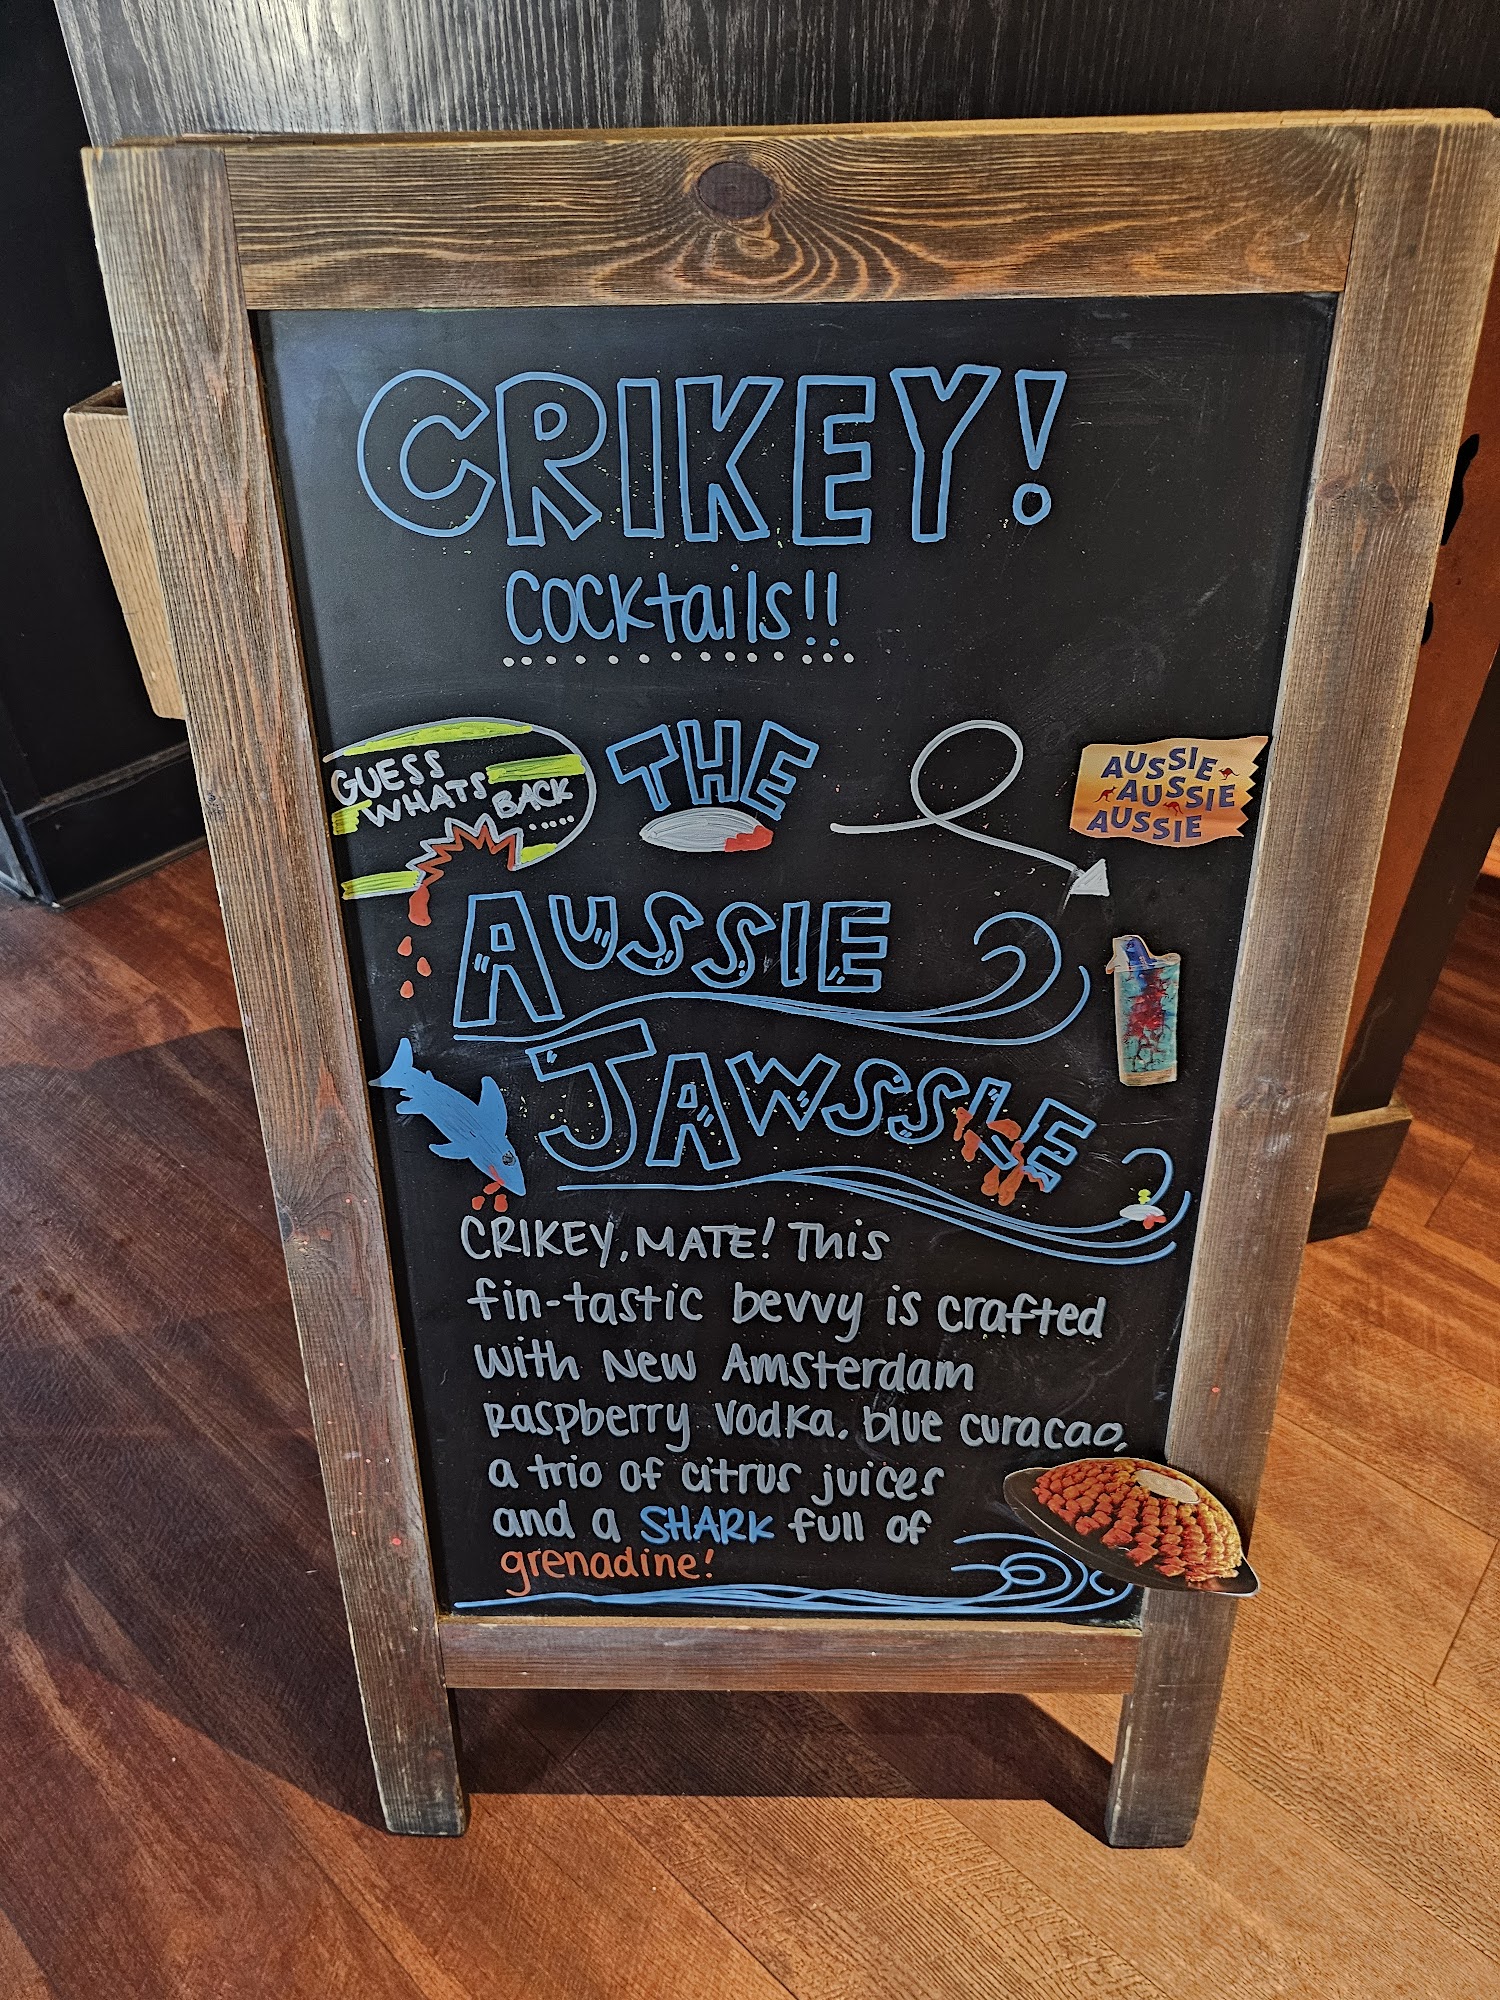 CRIKEY!
Cocktails!!
GUESS
WHATS
BACK.....
THE
AUSSIE
AUSSIE
AUSSIE
AUSSIE
JAWSSIE
CRIKEY, MATE! This
fin-tastic bevvy is crafted
with New Amsterdam
Raspberry Vodka. blue curacao,
a trio of citrus juices
and a SHARK full of
grenadine!